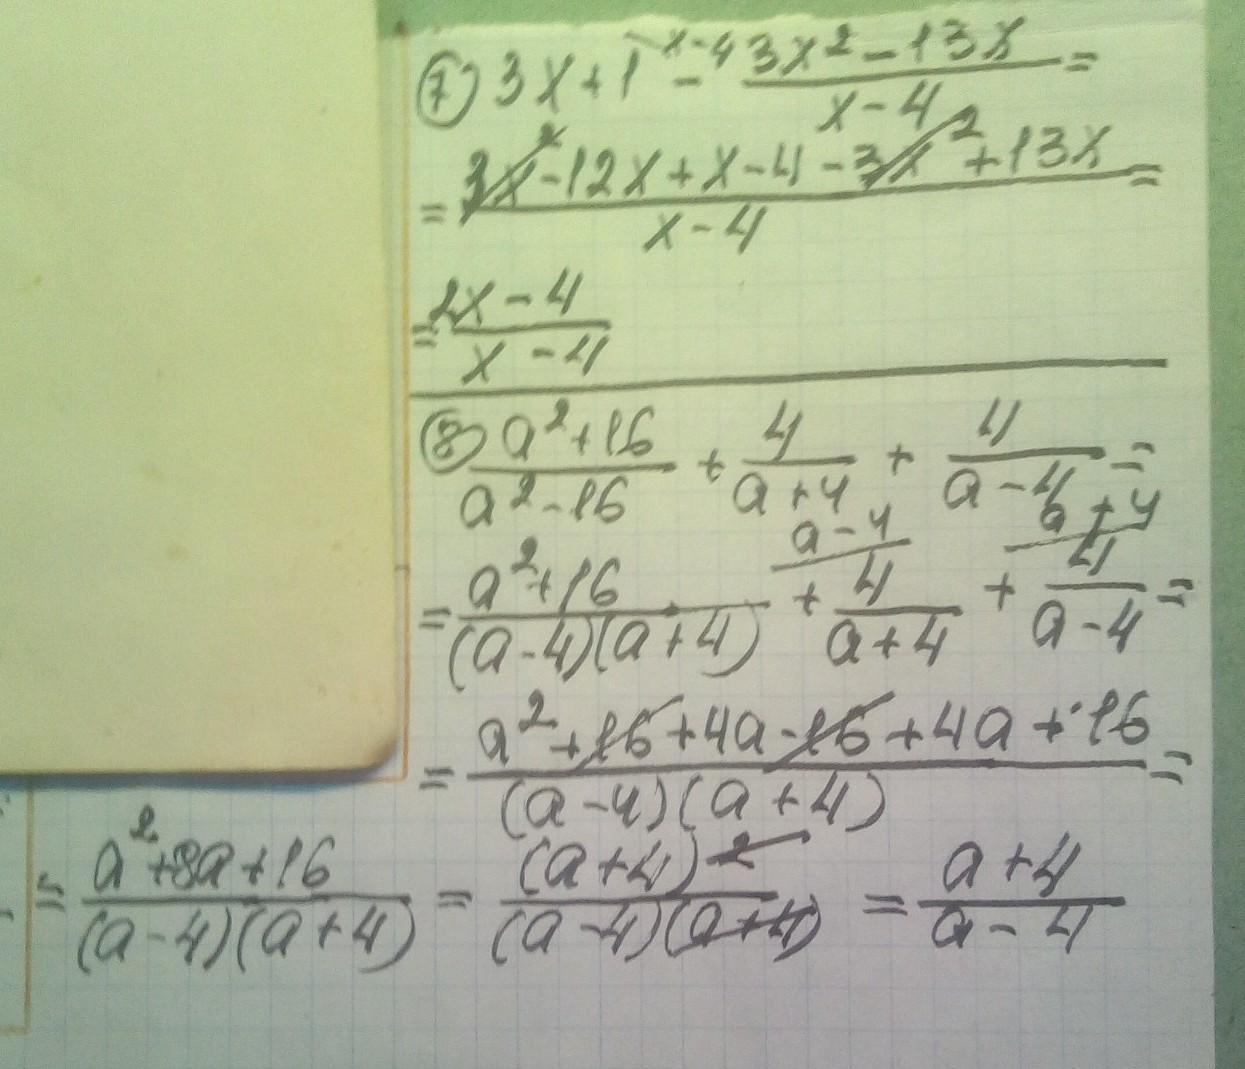 7) 3x+1 x-4 - 3x²-13x =
x-4
= 3x²-12x+x-4-3x²+13x =
x-4
= 2x-4
x-4
8) a²+16 + 4 + 4 =
a²-16 a+4 a-4
a-4 a+4
= a²+16 + 4 + 4 =
(a-4)(a+4) a+4 a-4
= a²+16+4a-16+4a+16 =
(a-4)(a+4)
= a²+8a+16 = (a+4)2 = a+4
(a-4)(a+4) (a-4)(a+4) a-4